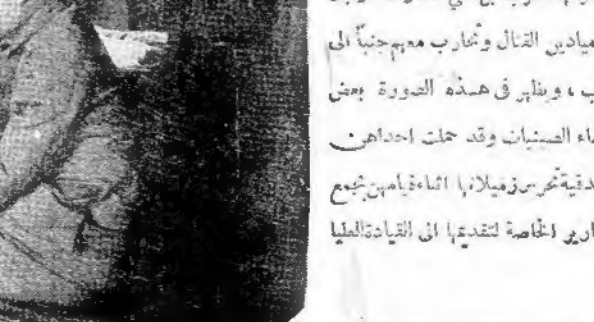 ميادين القتال وتحارب معهم جنبًا الى
ب ، ويظهر فى هـذه الصورة بعض
اء الصينيات وقد حملت احداهن
دقية تحرس زميلاتها اثناء قيامهن بجمع
ارير الخاصة لتقديمها الى القيادة العليا